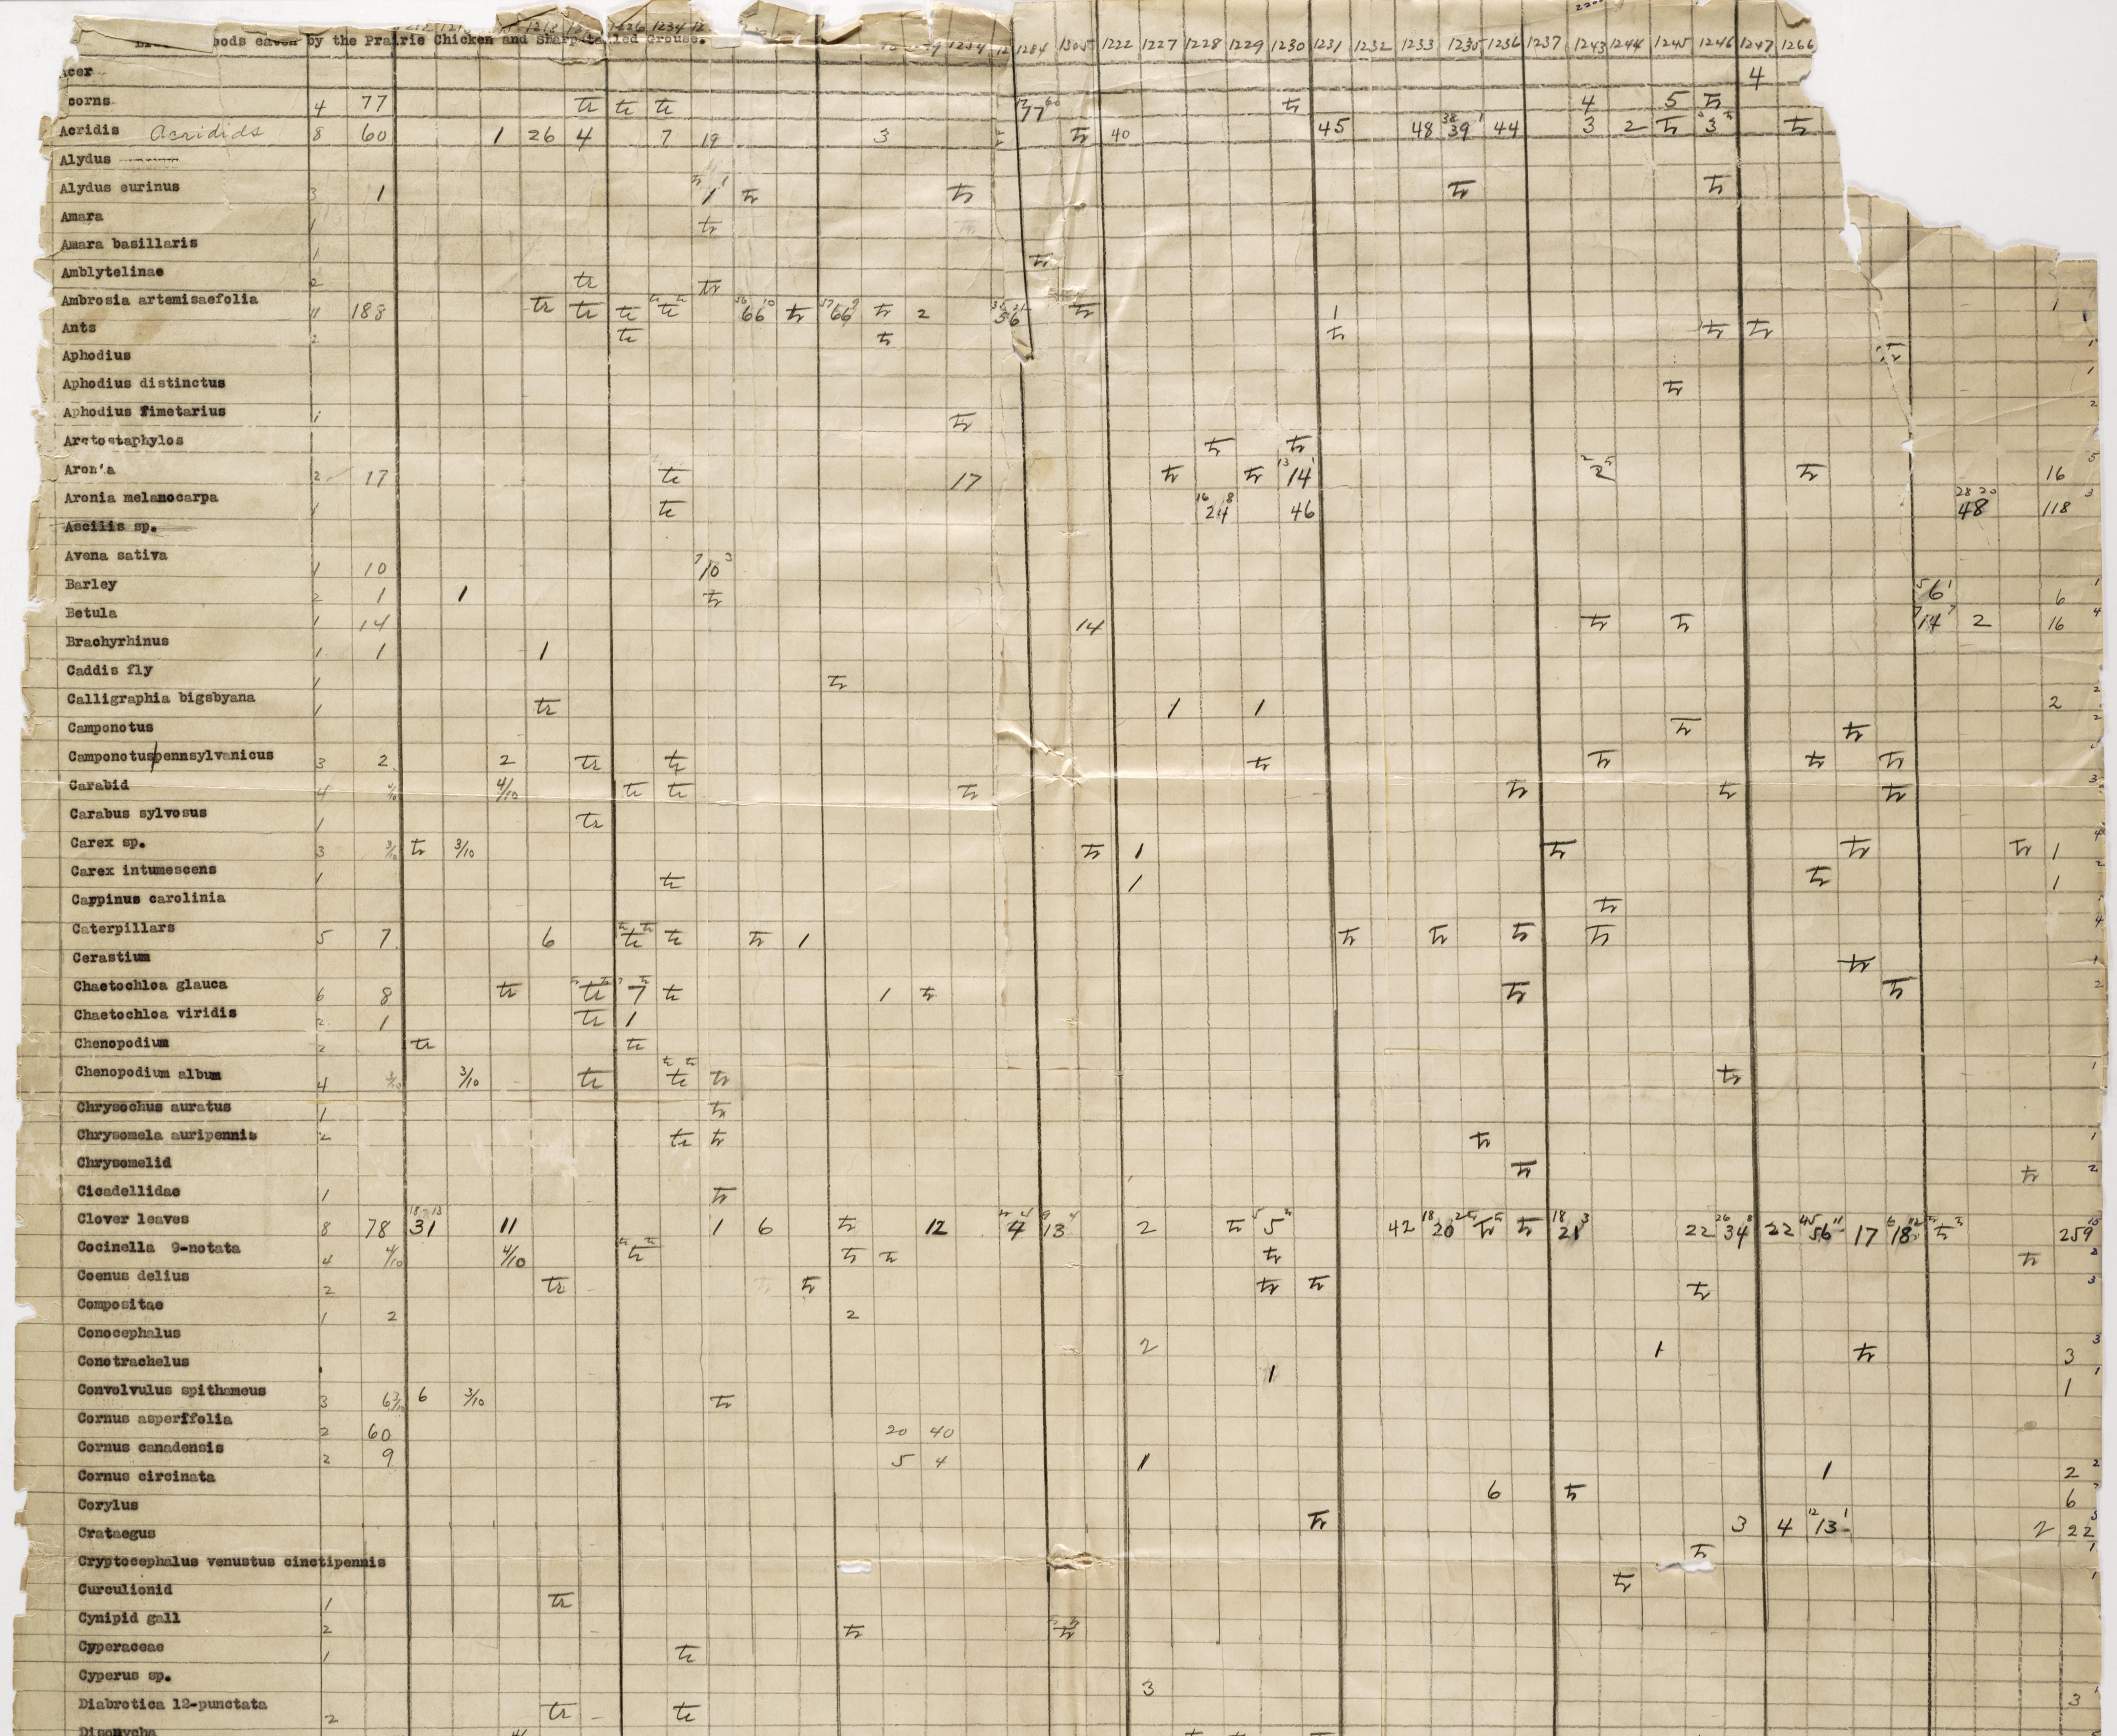 oods eaten by the Prairie Chicken and Sharp-tailed Grouse. 1226 1234 1254 1284 1305 1222 1227 1228 1229 1230 1231 1232 1233 1235 1236 1237 1243 1244 1245 1246 1247 1266
cer 4
corns 4 77 tr tr tr 77 tr 4 5 tr
Acridis Acridids 8 60 1 26 4 7 19 3 tr 40 45 48 38 39 1 44 3 2 tr 3 tr
Alydus
Alydus eurinus 3 1 tr 1 1 tr tr tr tr
Amara 1 tr
Amara basillaris 1 tr
Amblytelinae 2 tr tr
Ambrosia artemisaefolia 11 188 tr tr tr tr tr tr 56 66 10 tr 57 66 9 tr 2 56 tr 1 1
Ants 2 tr tr tr tr tr
Aphodius tr 1
Aphodius distinctus tr 1
Aphodius fimetarius 1 tr 2
Arctostaphylos tr tr
Aronia 2 17 tr 17 tr tr 13 14 1 2 tr 16 5
Aronia melanocarpa 1 tr 16 24 8 46 28 20 48 118 3
Ascilis sp.
Avena sativa 1 10 7 10 3
Barley 2 1 1 tr 5 6 1 6 1
Betula 1 14 14 tr tr 7 14 7 2 16 4
Brachyrhinus 1 1 1
Caddis fly 1 tr
Calligraphia bigsbyana 1 tr 1 1 2 2
Camponotus tr tr 2
Camponotus/pennsylvanicus 3 2 2 tr tr tr tr tr tr
Carabid 4 4/10 4/10 tr tr tr tr tr tr 3
Carabus sylvosus 1 tr
Carex sp. 3 3/10 tr 3/10 tr 1 tr tr tr 1 4
Carex intumescens 1 tr 1 tr 1 2
Cappinus carolinia tr
Caterpillars 5 7 6 tr tr tr tr tr 1 tr tr tr tr 4
Cerastium tr 1
Chaetochloa glauca 6 8 tr tr tr tr 7 7 tr tr 1 tr tr tr 2
Chaetochloa viridis 2 1 tr 1
Chenopodium 2 tr tr
Chenopodium album 4 3/10 3/10 tr tr tr tr tr tr 1
Chrysochus auratus 1 tr
Chrysomela auripennis 2 tr tr tr 1
Chrysomelid tr tr 2
Cicadellidae 1 tr
Clover leaves 8 78 18 31 13 11 1 6 tr 12 4 9 13 4 2 tr 5 5 tr 42 18 20 2 tr tr 18 21 3 22 26 34 8 22 45 56 11 17 6 18 12 tr 259 15
Cocinella 9-notata 4 4/10 4/10 tr tr tr tr tr tr tr 2
Coenus delius 2 tr tr tr tr tr 3
Compositae 1 2 2
Conocephalus 2 1 tr 3 3
Conotrachelus 1 1 1
Convolvulus spithameus 3 6 3/10 6 3/10 tr
Cornus asperifolia 2 60 20 40
Cornus canadensis 2 9 5 4 1 1 2 2
Cornus circinata 6 tr 6
Corylus tr
Crataegus 3 4 12 13 1 2 22 3
Cryptocephalus venustus cinctipennis tr 1
Curculionid 1 tr tr 1
Cynipid gall 2 tr tr
Cyperaceae 1 tr
Cyperus sp. 3 3 1
Diabrotica 12-punctata 2 tr tr
Disonycha